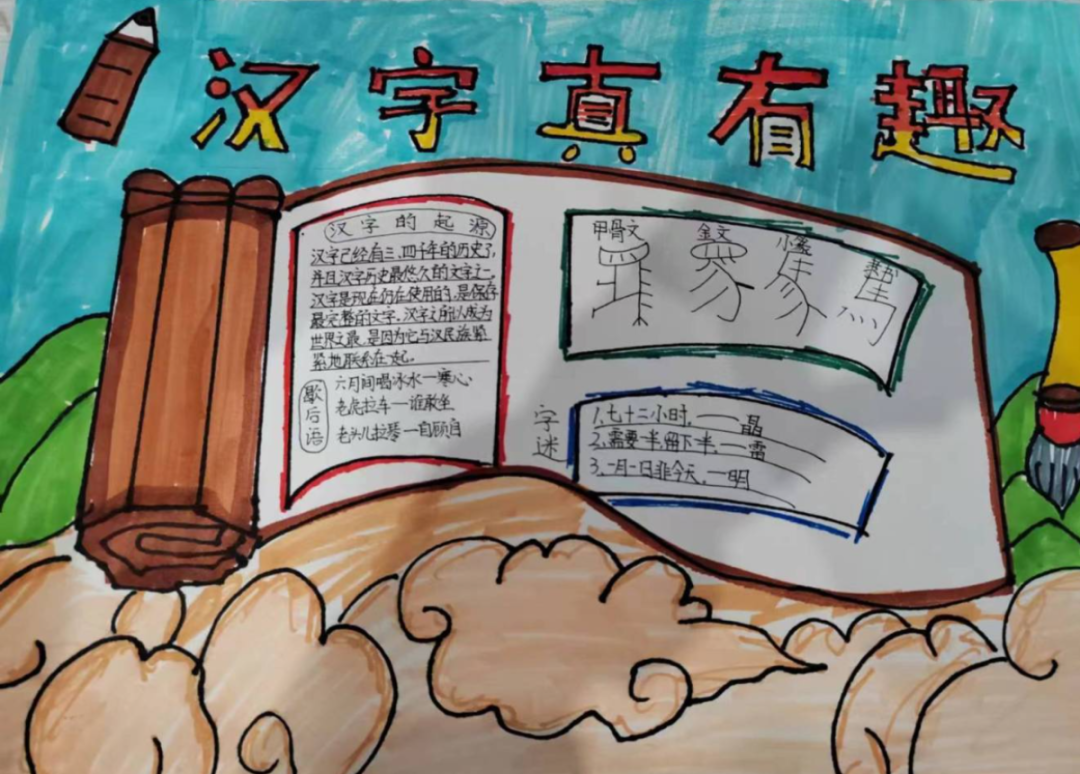 汉字真有趣
汉字的起源
汉字已经有三、四千年的历史了,
并且汉字历史最悠久的文字之一,
汉字是现在仍在使用的,是保存
最完整的文字。汉字之所以成为
世界之最,是因为它与汉民族紧
紧地联系在一起。
歇后语
六月间喝冰水一寒心
老虎拉车一谁敢坐
老头儿拉琴一自顾自
甲骨文
金文
小篆
字迷
1.七十二小时,一晶
2.需要一半,留下一半,一雷
3.一月一日非今天,一明